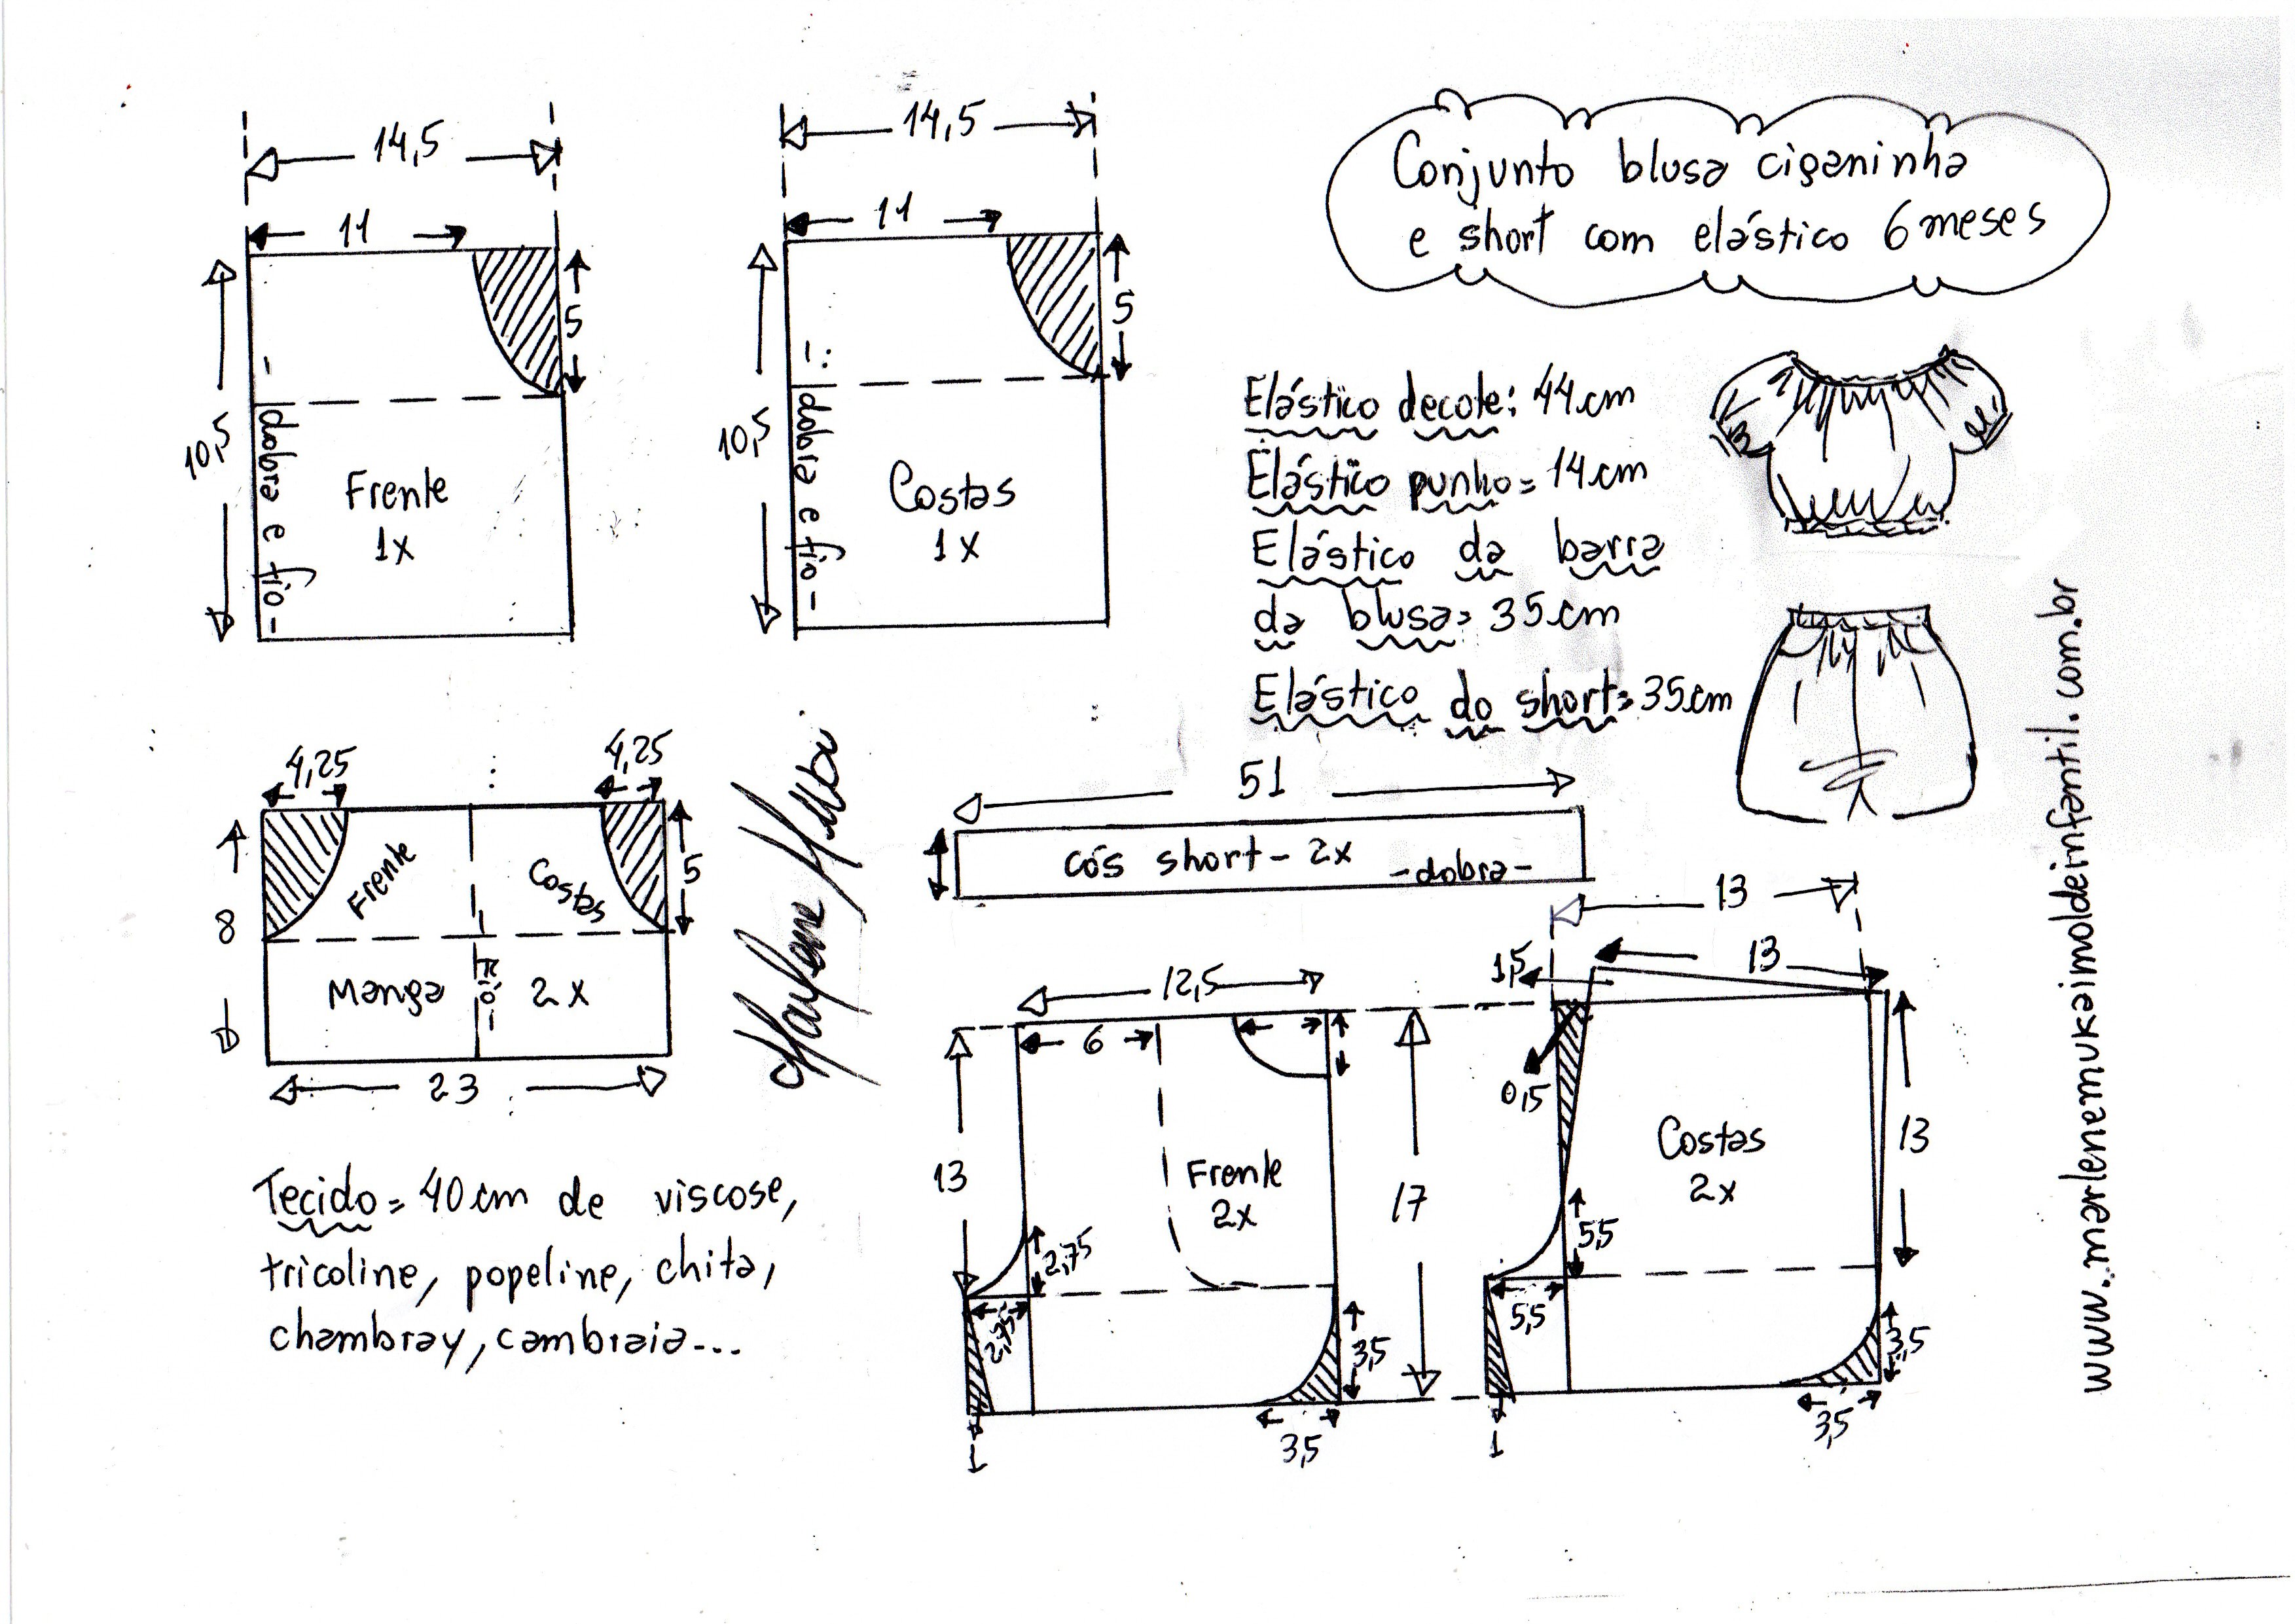 Conjunto blusa ciganinha
e short com elástico 6 meses
14,5
11
10,5
5
dobra e fio
Frente
1x
14,5
11
10,5
5
dobra e fio
Costas
1x
Elástico decote: 44cm
Elástico punho = 14cm
Elástico da barra
da blusa = 35cm
Elástico do short = 35cm
4,25
4,25
8
5
Frente
Costas
Manga
fio
2x
23
51
cós short - 2x
-dobra-
12,5
6
13
17
Frente
2x
2,75
2,75
3,5
3,5
1
13
13
1,5
0,5
Costas
2x
13
5,5
5,5
3,5
3,5
1
Tecido = 40cm de viscose,
tricoline, popeline, chita,
chambray, cambraia...
www.marlenemukaimoldeinfantil.com.br